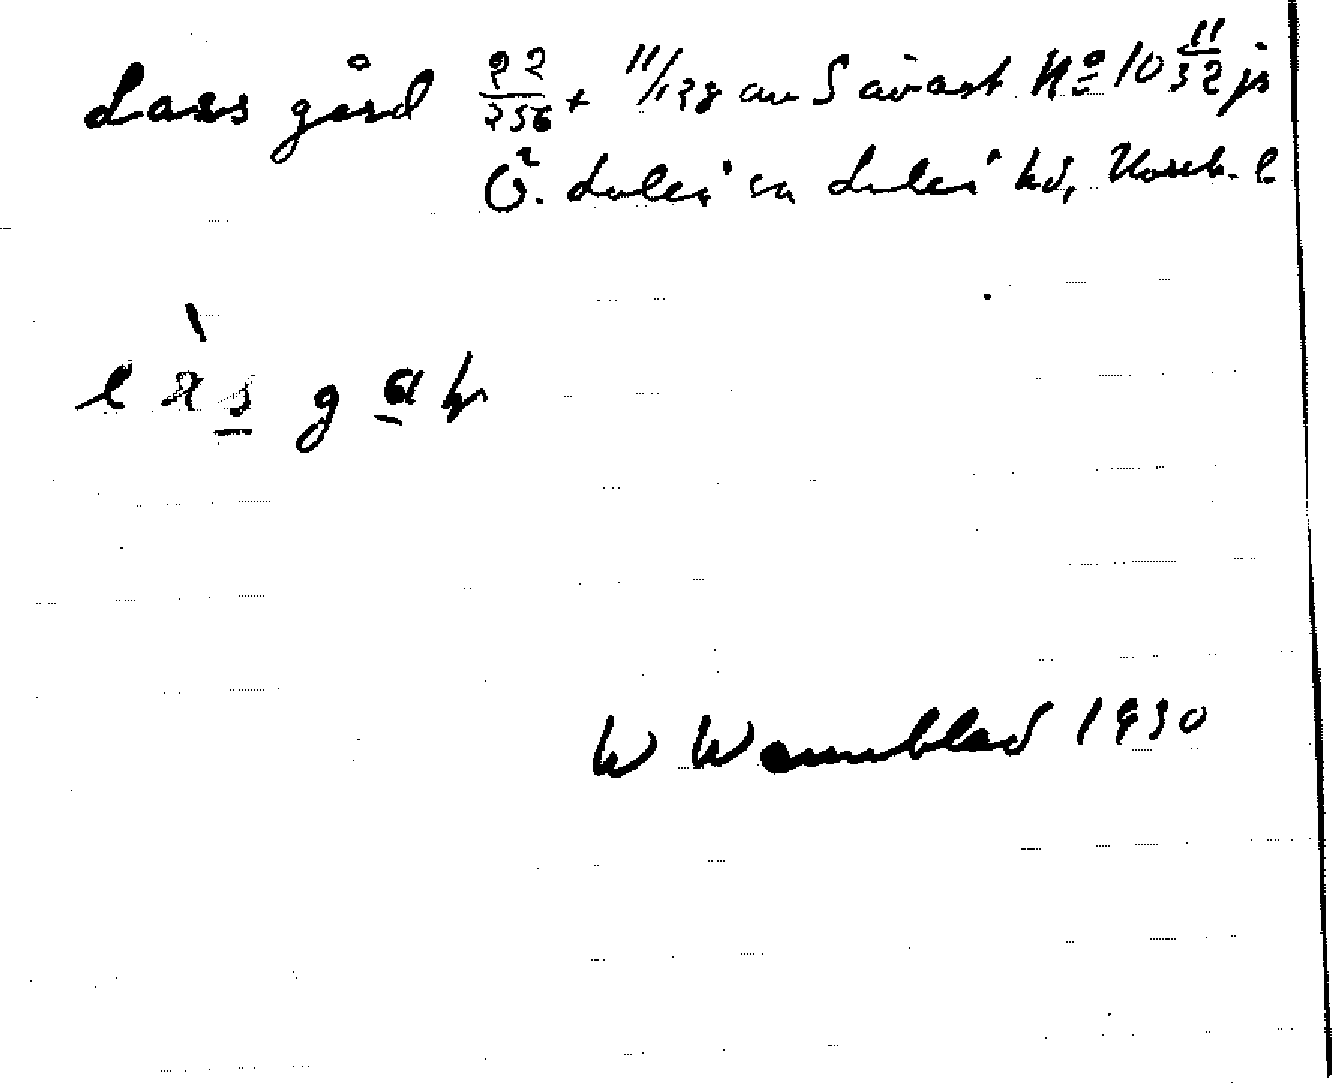 Lars gård 22/256 + 11/128 av Sävast No 10 11/32 js
Ö. Luleå sn Luleå hd, Norrb. l
W Wennblad 1930